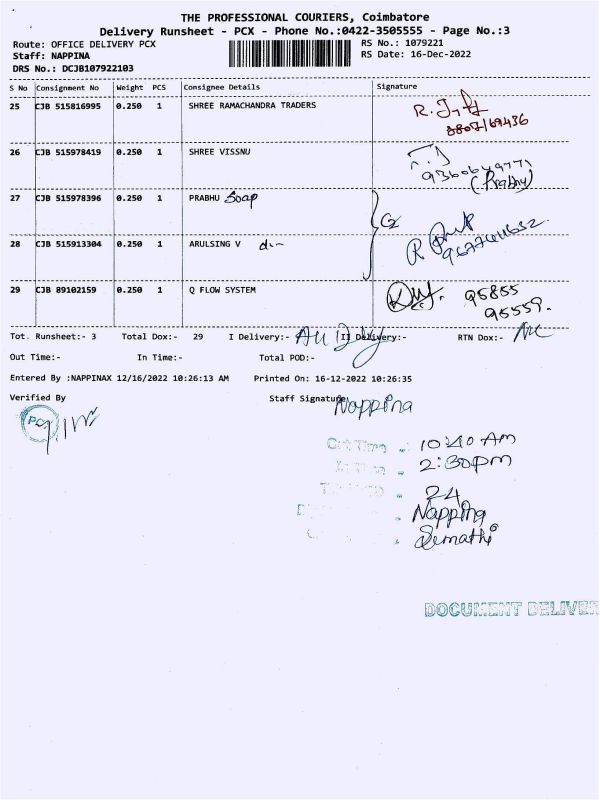 THE PROFESSIONAL COURIERS, Coimbatore
Delivery Runsheet - PCX - Phone No.:0422-3505555 - Page No.:3
Route: OFFICE DELIVERY PCX RS No.: 1079221
Staff: NAPPINA RS Date: 16-Dec-2022
DRS No.: DCJB107922103
S No Consignment No Weight PCS Consignee Details Signature
25 CJB 515816995 0.250 1 SHREE RAMACHANDRA TRADERS
26 CJB 515978419 0.250 1 SHREE VISSNU
9360649771
(Prabhu)
27 CJB 515978396 0.250 1 PRABHU Soap
28 CJB 515913304 0.250 1 ARULSING V
29 CJB 89102159 0.250 1 Q FLOW SYSTEM 95855
95559.
Tot. Runsheet:- 3 Total Dox:- 29 I Delivery:- II Delivery:- RTN Dox:-
Out Time:- In Time:- Total POD:-
Entered By :NAPPINAX 12/16/2022 10:26:13 AM Printed On: 16-12-2022 10:26:35
Verified By Staff Signature Nappina
PCX
Out Time : 10:40 AM
In Time - 2:30pm
24
Nappina
DOCUMENT DELIVER